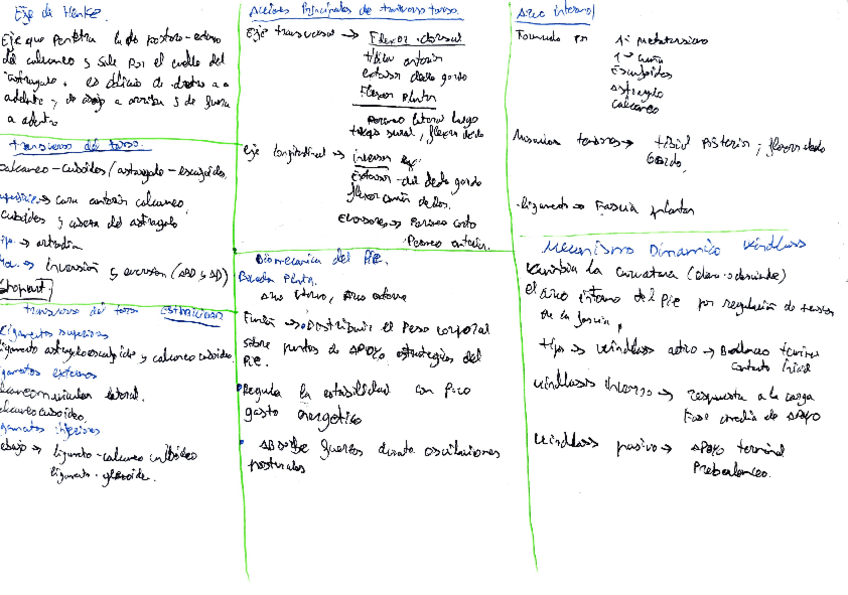 Eje de Henke.
Eje que penetra lado postero-externo
del calcaneo y sale por el cuello del
astragalo. es oblicuo de dentro a
adelante, de abajo a arriba y de fuera
a adentro
transverso del tarso.
calcaneo-cuboides/astragalo-escafoides.
cara anterior calcaneo,
cuboides y cabeza del astragalo
tipo → artrodia
Mov. → inversión y eversion (ABD y AD)
Chopart
transverso del tarso Estabilidad
Ligamentos superiores
ligamento astragaloescafoideo y calcaneo cuboideo
ligamentos externos
lateral.
calcaneocuboideo.
ligamentos inferiores
debajo → ligamento-calcaneo cuboideo
ligamento-glenoide.
Acciones Principales de transverso tarso.
Eje transversal → Flexor dorsal
tibial anterior
extensor dedo gordo
Flexor plantar
peroneo lateral largo
triceps sural, flexor dedo
eje longitudinal → inversor
Extensor del dedo gordo
flexor comun dedos.
Eversores → Peroneo corto
Peroneo anterior.
Biomecanica del Pie.
Boveda Plantar.
Arco interno, Arco externo
Función → Distribuir el peso corporal
sobre puntos de apoyo estrategicos del
pie.
Regula la estabilidad con poco
gasto energetico
Absorbe fuerzas durante oscilaciones
posturales
Arco interno
Formado por 1º metatarsiano
1º cuña
Escafoides
Astragalo
calcaneo
Musculos tensores → tibial posterior, flexor dedo
Gordo.
-ligamento → Fascia plantar
Mecanismo Dinamico Windlass
cambia la curvatura
el arco interno del pie por regulación de tension
de la fascia,
tipos → windlass activo → Balanceo terminal
contacto inicial
windlass inverso → respuesta a la carga
Fase media de apoyo
windlass pasivo → apoyo terminal
Prebalanceo.